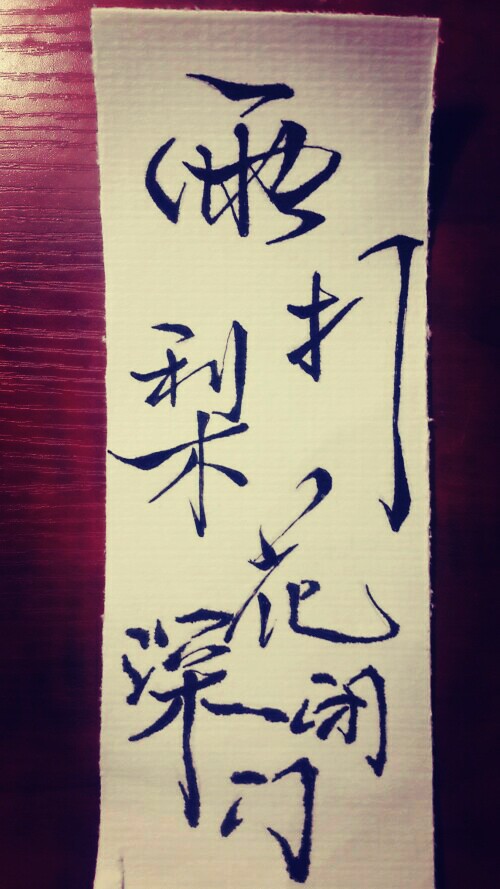 雨打梨花深闭门